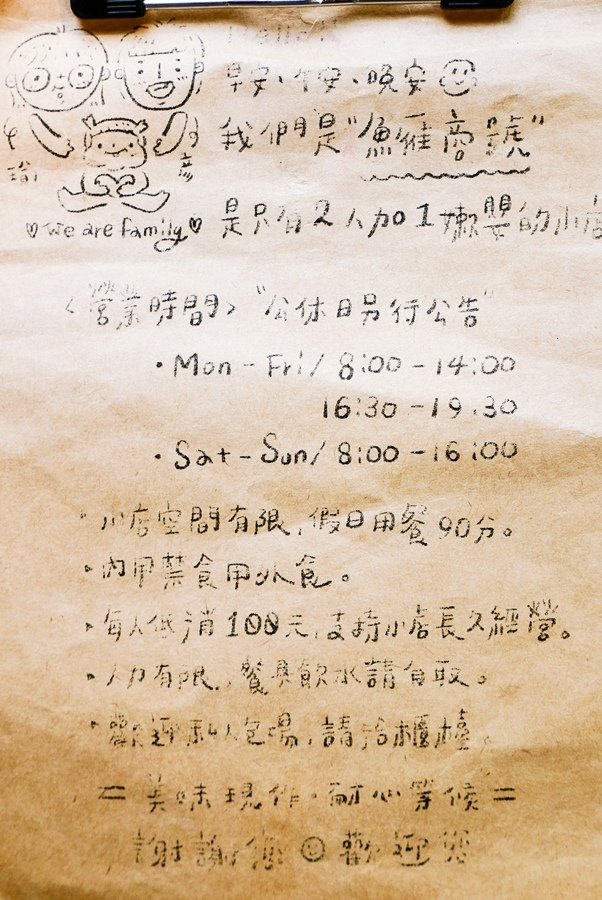 早安、午安、晚安
我們是"魚雅商號"
瑜
彥
we are family
是只有2人加1嫩嬰的小店
<營業時間> "公休日另行公告"
·Mon-Fri/ 8:00-14:00
16:30-19:30
·Sat-Sun/ 8:00-16:00
·小店空間有限,假日用餐90分。
·內用禁食用外食。
·每人低消100元,支持小店長久經營。
·人力有限,餐具飲水請自取。
·歡迎私人包場,請洽櫃檯。
=美味現作·耐心等候=
謝謝你 歡迎您